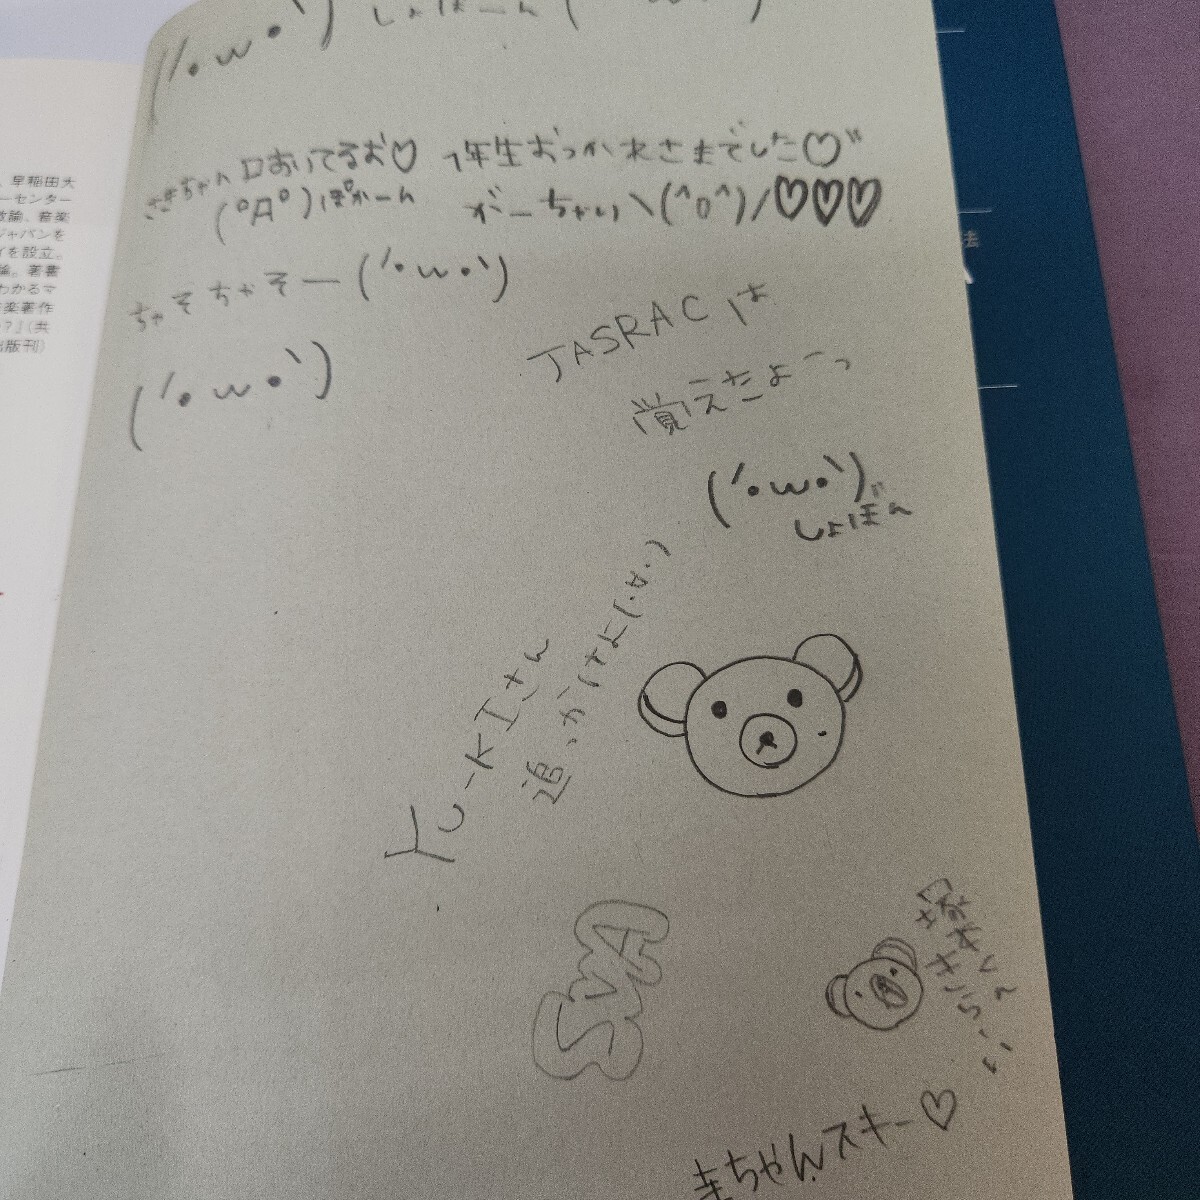 (´・ω・`) しょぼーん (
さきちゃん 口あいてるお♡ 1年生おつかれさまでした♡
(°Д°)ぽかーん がーちゃい \(^o^)/♡♡♡
ちゃそちゃそー(´・ω・`)
(´・ω・`)
JASRACは
覚えたよーっ
(´・ω・`)
しょぼん
YU-KIさん
追っかけよ(・∀・)
SVA
きらーい
ちゃんスキー♡
、早稲田大
ーセンター
論、音楽
ジャパンを
イを設立。
論。著書
わかるマ
楽著作
?』(共
出版刊)
法